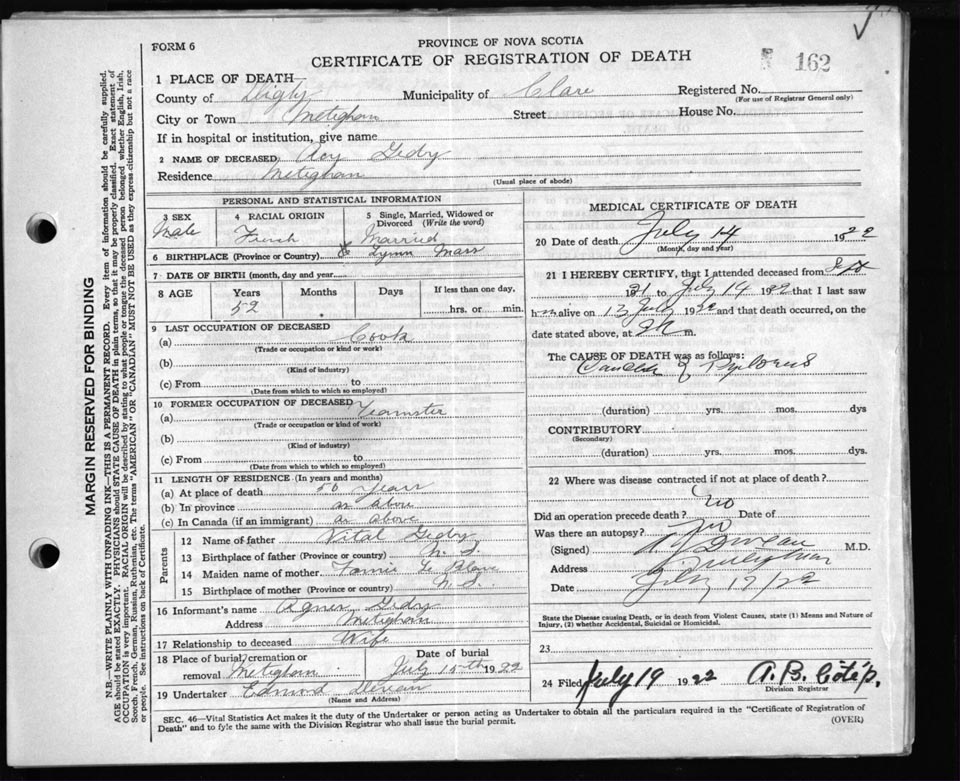 FORM 6
PROVINCE OF NOVA SCOTIA
CERTIFICATE OF REGISTRATION OF DEATH
162
1 PLACE OF DEATH
County of Digby Municipality of Clare Registered No.
(For use of Registrar General only)
City or Town Meteghan Street House No.
If in hospital or institution, give name
2 NAME OF DECEASED Roy Gedry
Residence Meteghan
(Usual place of abode)
PERSONAL AND STATISTICAL INFORMATION
3 SEX
Male
4 RACIAL ORIGIN
French
5 Single, Married, Widowed or Divorced (Write the word)
Married
6 BIRTHPLACE (Province or Country) Lynn Mass
7 DATE OF BIRTH (month, day and year)
8 AGE Years Months Days If less than one day,
52 hrs. or min.
9 LAST OCCUPATION OF DECEASED
(a) Cook
(Trade or occupation or kind or work)
(b)
(Kind of industry)
(c) From to
(Date from which to which so employed)
10 FORMER OCCUPATION OF DECEASED
(a) Teamster
(Trade or occupation or kind of work)
(b)
(Kind of industry)
(c) From to
(Date from which to which so employed)
11 LENGTH OF RESIDENCE (In years and months)
(a) At place of death 50 Years
(b) In province as above
(c) In Canada (if an immigrant) as above
Parents
12 Name of father Vital Gedry
13 Birthplace of father (Province or country) N. S.
14 Maiden name of mother Le Blanc
15 Birthplace of mother (Province or country) N. S.
16 Informant's name Agnes Gedry
Address Meteghan
17 Relationship to deceased Wife
18 Place of burial, cremation or removal Meteghan
Date of burial
July 15th 1922
19 Undertaker Edmund
(Name and Address)
MEDICAL CERTIFICATE OF DEATH
20 Date of death July 14 1922
(Month, day and year)
21 I HEREBY CERTIFY, that I attended deceased from Sept
1921 to July 14 1922 that I last saw
him alive on 13 July 1922 and that death occurred, on the
date stated above, at m.
The CAUSE OF DEATH was as follows:
Cancer of Pylorus
(duration) yrs. mos. dys
CONTRIBUTORY
(Secondary)
(duration) yrs. mos. dys.
22 Where was disease contracted if not at place of death?
Did an operation precede death? No Date of
Was there an autopsy? No
(Signed) M.D.
Address Meteghan
Date July 17/22
State the Disease causing Death, or in death from Violent Causes, state (1) Means and Nature of
Injury, (2) whether Accidental, Suicidal or Homicidal.
23
24 Filed July 19 1922 A. B. Coté p.
Division Registrar
SEC. 46—Vital Statistics Act makes it the duty of the Undertaker or person acting as Undertaker to obtain all the particulars required in the "Certificate of Registration of
Death" and to fyle the same with the Division Registrar who shall issue the burial permit. (OVER)
MARGIN RESERVED FOR BINDING
N.B.—WRITE PLAINLY WITH UNFADING INK—THIS IS A PERMANENT RECORD. Every item of information should be carefully supplied.
AGE should be stated EXACTLY. PHYSICIANS should STATE CAUSE OF DEATH in plain terms, so that it may be properly classified. Exact statement of
OCCUPATION is very important. RACIAL ORIGIN will be described by stating to what people or tongue the deceased person belonged whether English, Irish,
Scotch, French, German, Russian, Ruthenian, etc. The terms "AMERICAN" or "CANADIAN" MUST NOT BE USED as they express citizenship but not a race
or people. See instructions on back of Certificate.